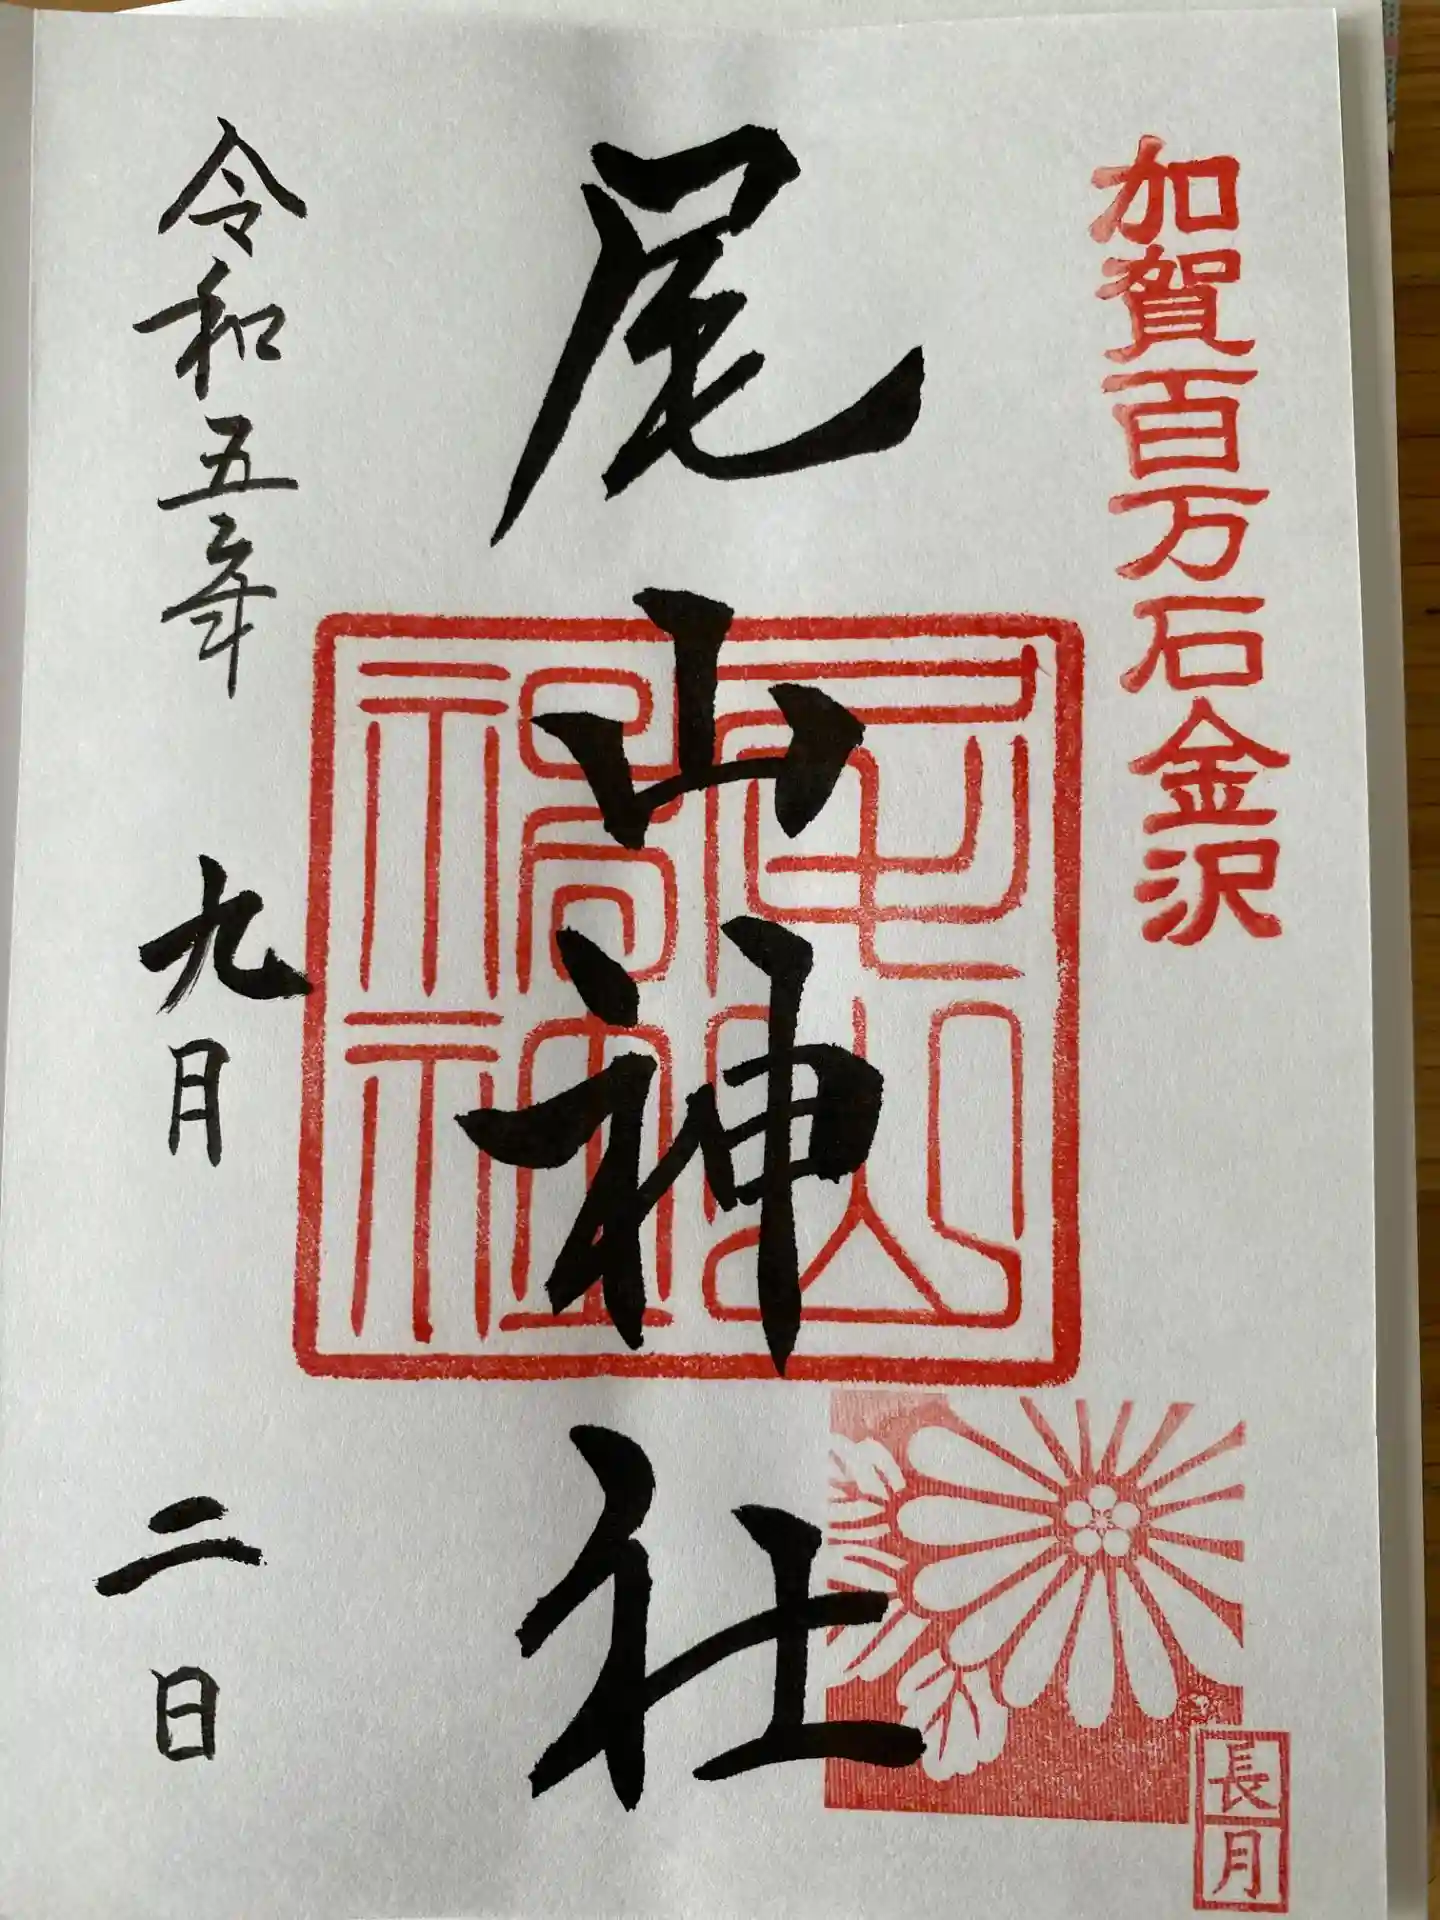 加賀百万石金沢
尾山神社
尾山神社
令和五年 九月 二日
長月